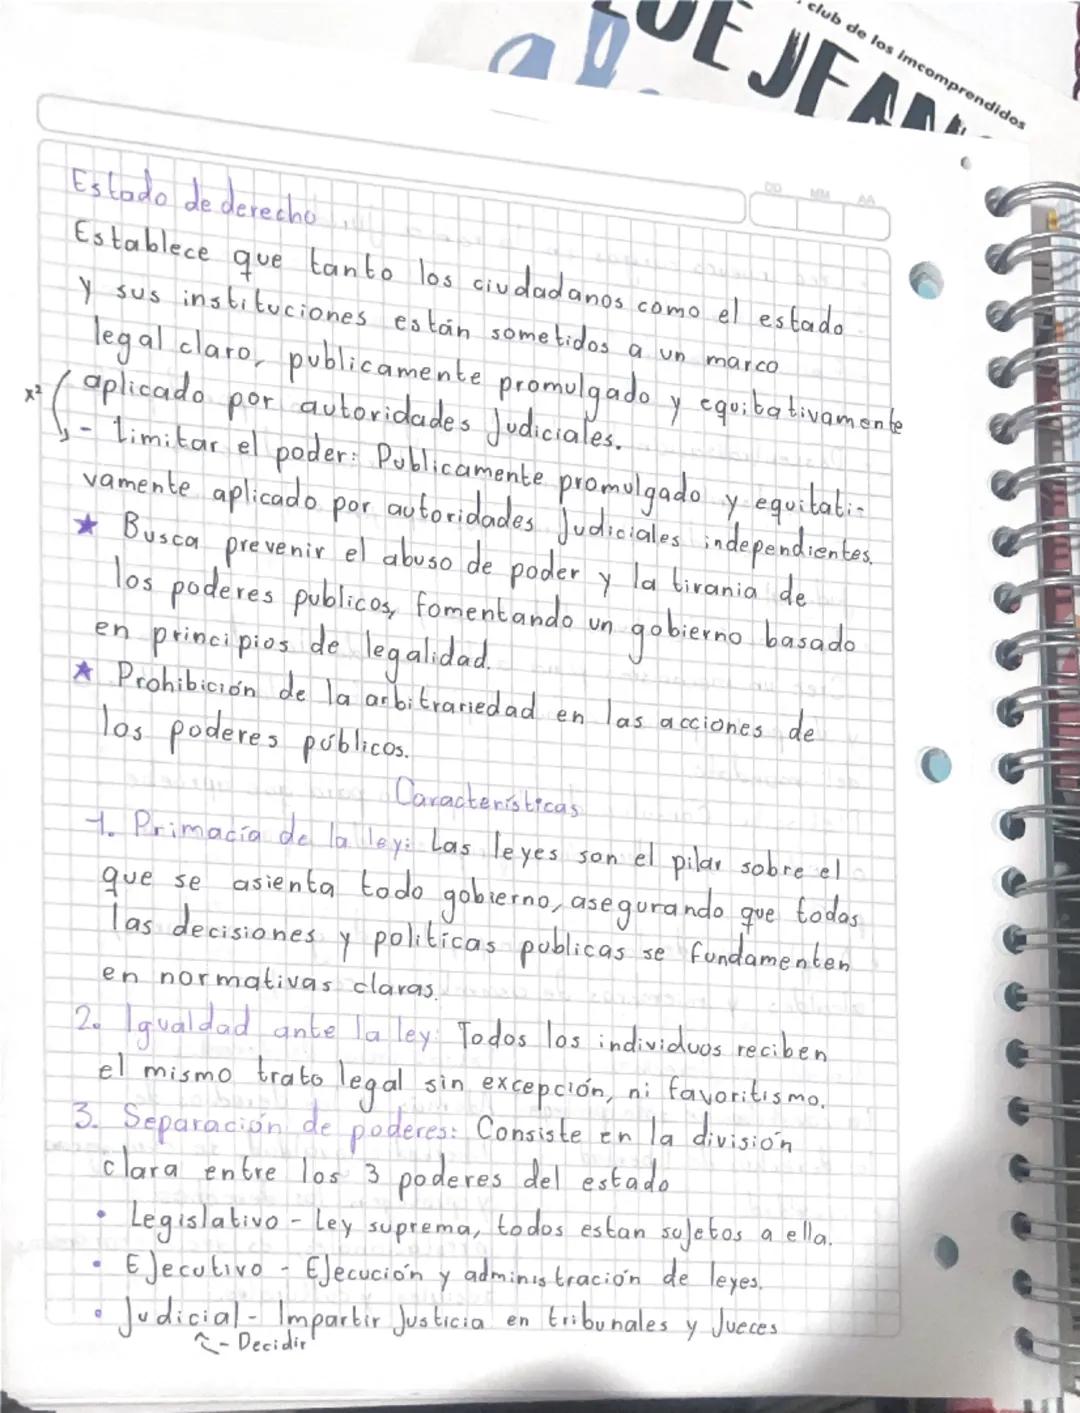 club de los imcomprendidos
DD MM AA
Estado de derecho
Establece que tanto los ciudadanos como el estado
y sus instituciones están sometidos a un marco
legal claro, publicamente promulgado y equitativamente
aplicado por autoridades Judiciales.
x²
- Limitar el poder: Publicamente promulgado y equitati-
vamente aplicado por autoridades Judiciales independientes.
★ Busca prevenir el abuso de poder y la tirania de
los poderes publicos, fomentando un gobierno basado
en principios de legalidad.
★ Prohibición de la arbitrariedad en las acciones de
los poderes públicos.
Características
1. Primacía de la ley: Las leyes son el pilar sobre el
que se asienta todo gobierno, asegurando que todas
las decisiones y politicas publicas se fundamenten
en normativas claras.
2. Igualdad ante la ley: Todos los individuos reciben
el mismo trato legal sin excepción, ni favoritismo.
3. Separación de poderes: Consiste en la división
clara entre los 3 poderes del estado
• Legislativo - Ley suprema, todos estan sujetos a ella.
• Ejecutivo - Ejecución y administración de leyes.
• Judicial - Impartir Justicia en tribunales y Jueces
- Decidir